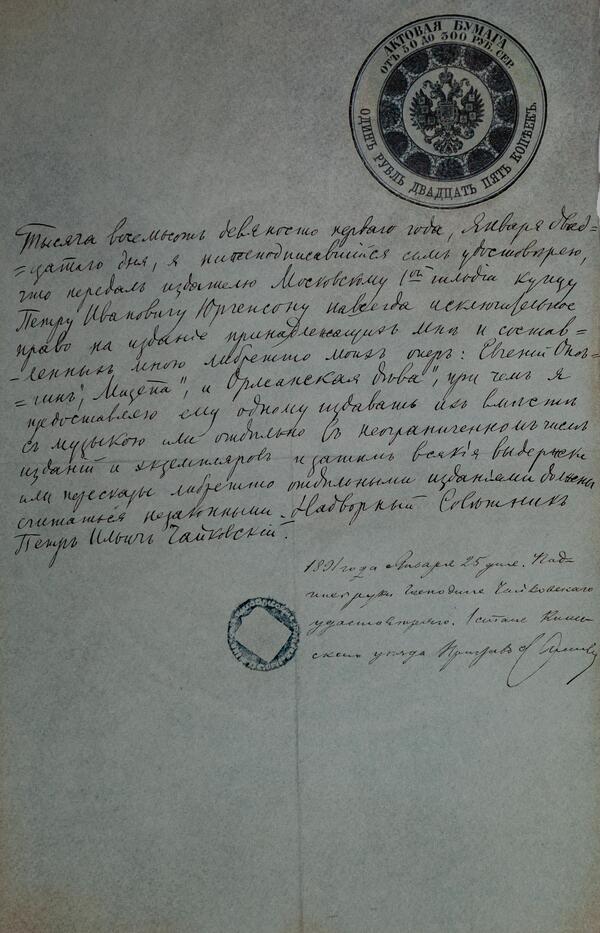 АКТОВАЯ БУМАГА
ОТЪ 50 ДО 300 РУБ. СЕР.
ОДИНЪ РУБЛЬ ДВАДЦАТЬ ПЯТЬ КОПѢЕКЪ.
Тысяча восемьсотъ девяносто перваго года, Января двад-
=цатаго дня, я нижеподписавшійся симъ удостовѣряю,
что передалъ издателю Московскому 1ой гильдіи купцу
Петру Ивановичу Юргенсону навсегда исключительное
право на изданіе принадлежащихъ мнѣ и состав-
=ленныхъ мною либретто моихъ оперъ: Евгеній Онѣ-
=гинъ", Мазепа", и Орлеанская дѣва", при чемъ я
предоставляю ему одному издавать ихъ вмѣстѣ
съ музыкою или отдѣльно въ неограниченномъ числѣ
изданій и экземпляровъ и затѣмъ всякія выдержки
или пересказы либретто отдѣльными изданіями должны
считаться незаконными. Надворный Совѣтникъ
Петръ Ильичъ Чайковскій.
1891 года Января 25 дня. Под-
пись руки Господина Чайковскаго
удостовѣряю. 1 стана Клин-
скаго уѣзда Приставъ